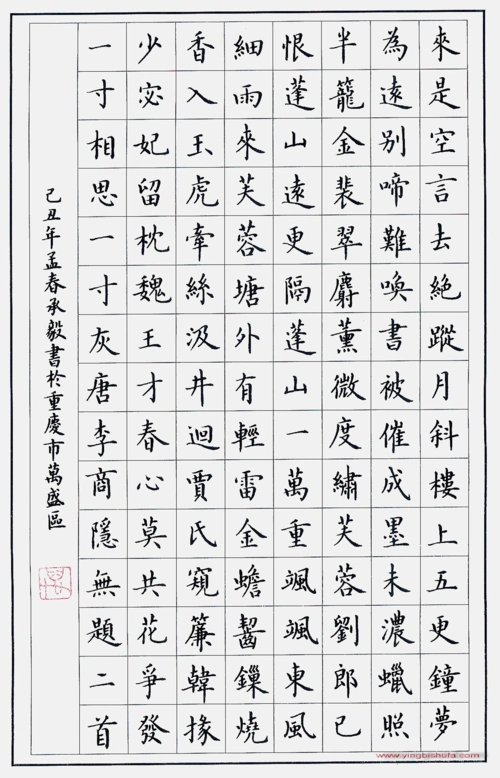 來是空言去絕蹤月斜樓上五更鐘夢
為遠别啼難喚書被催成墨未濃蠟照
半籠金裴翠麝薰微度繡芙蓉劉郎已
恨蓬山遠更隔蓬山一萬重颯颯東風
細雨來芙蓉塘外有輕雷金蟾齧鏁燒
香入玉虎牽絲汲井迴賈氏窺簾韓掾
少宓妃留枕魏王才春心莫共花爭發
一寸相思一寸灰唐李商隱無題二首
己丑年孟春承毅書於重慶市萬盛區
www.yingbishufa.com